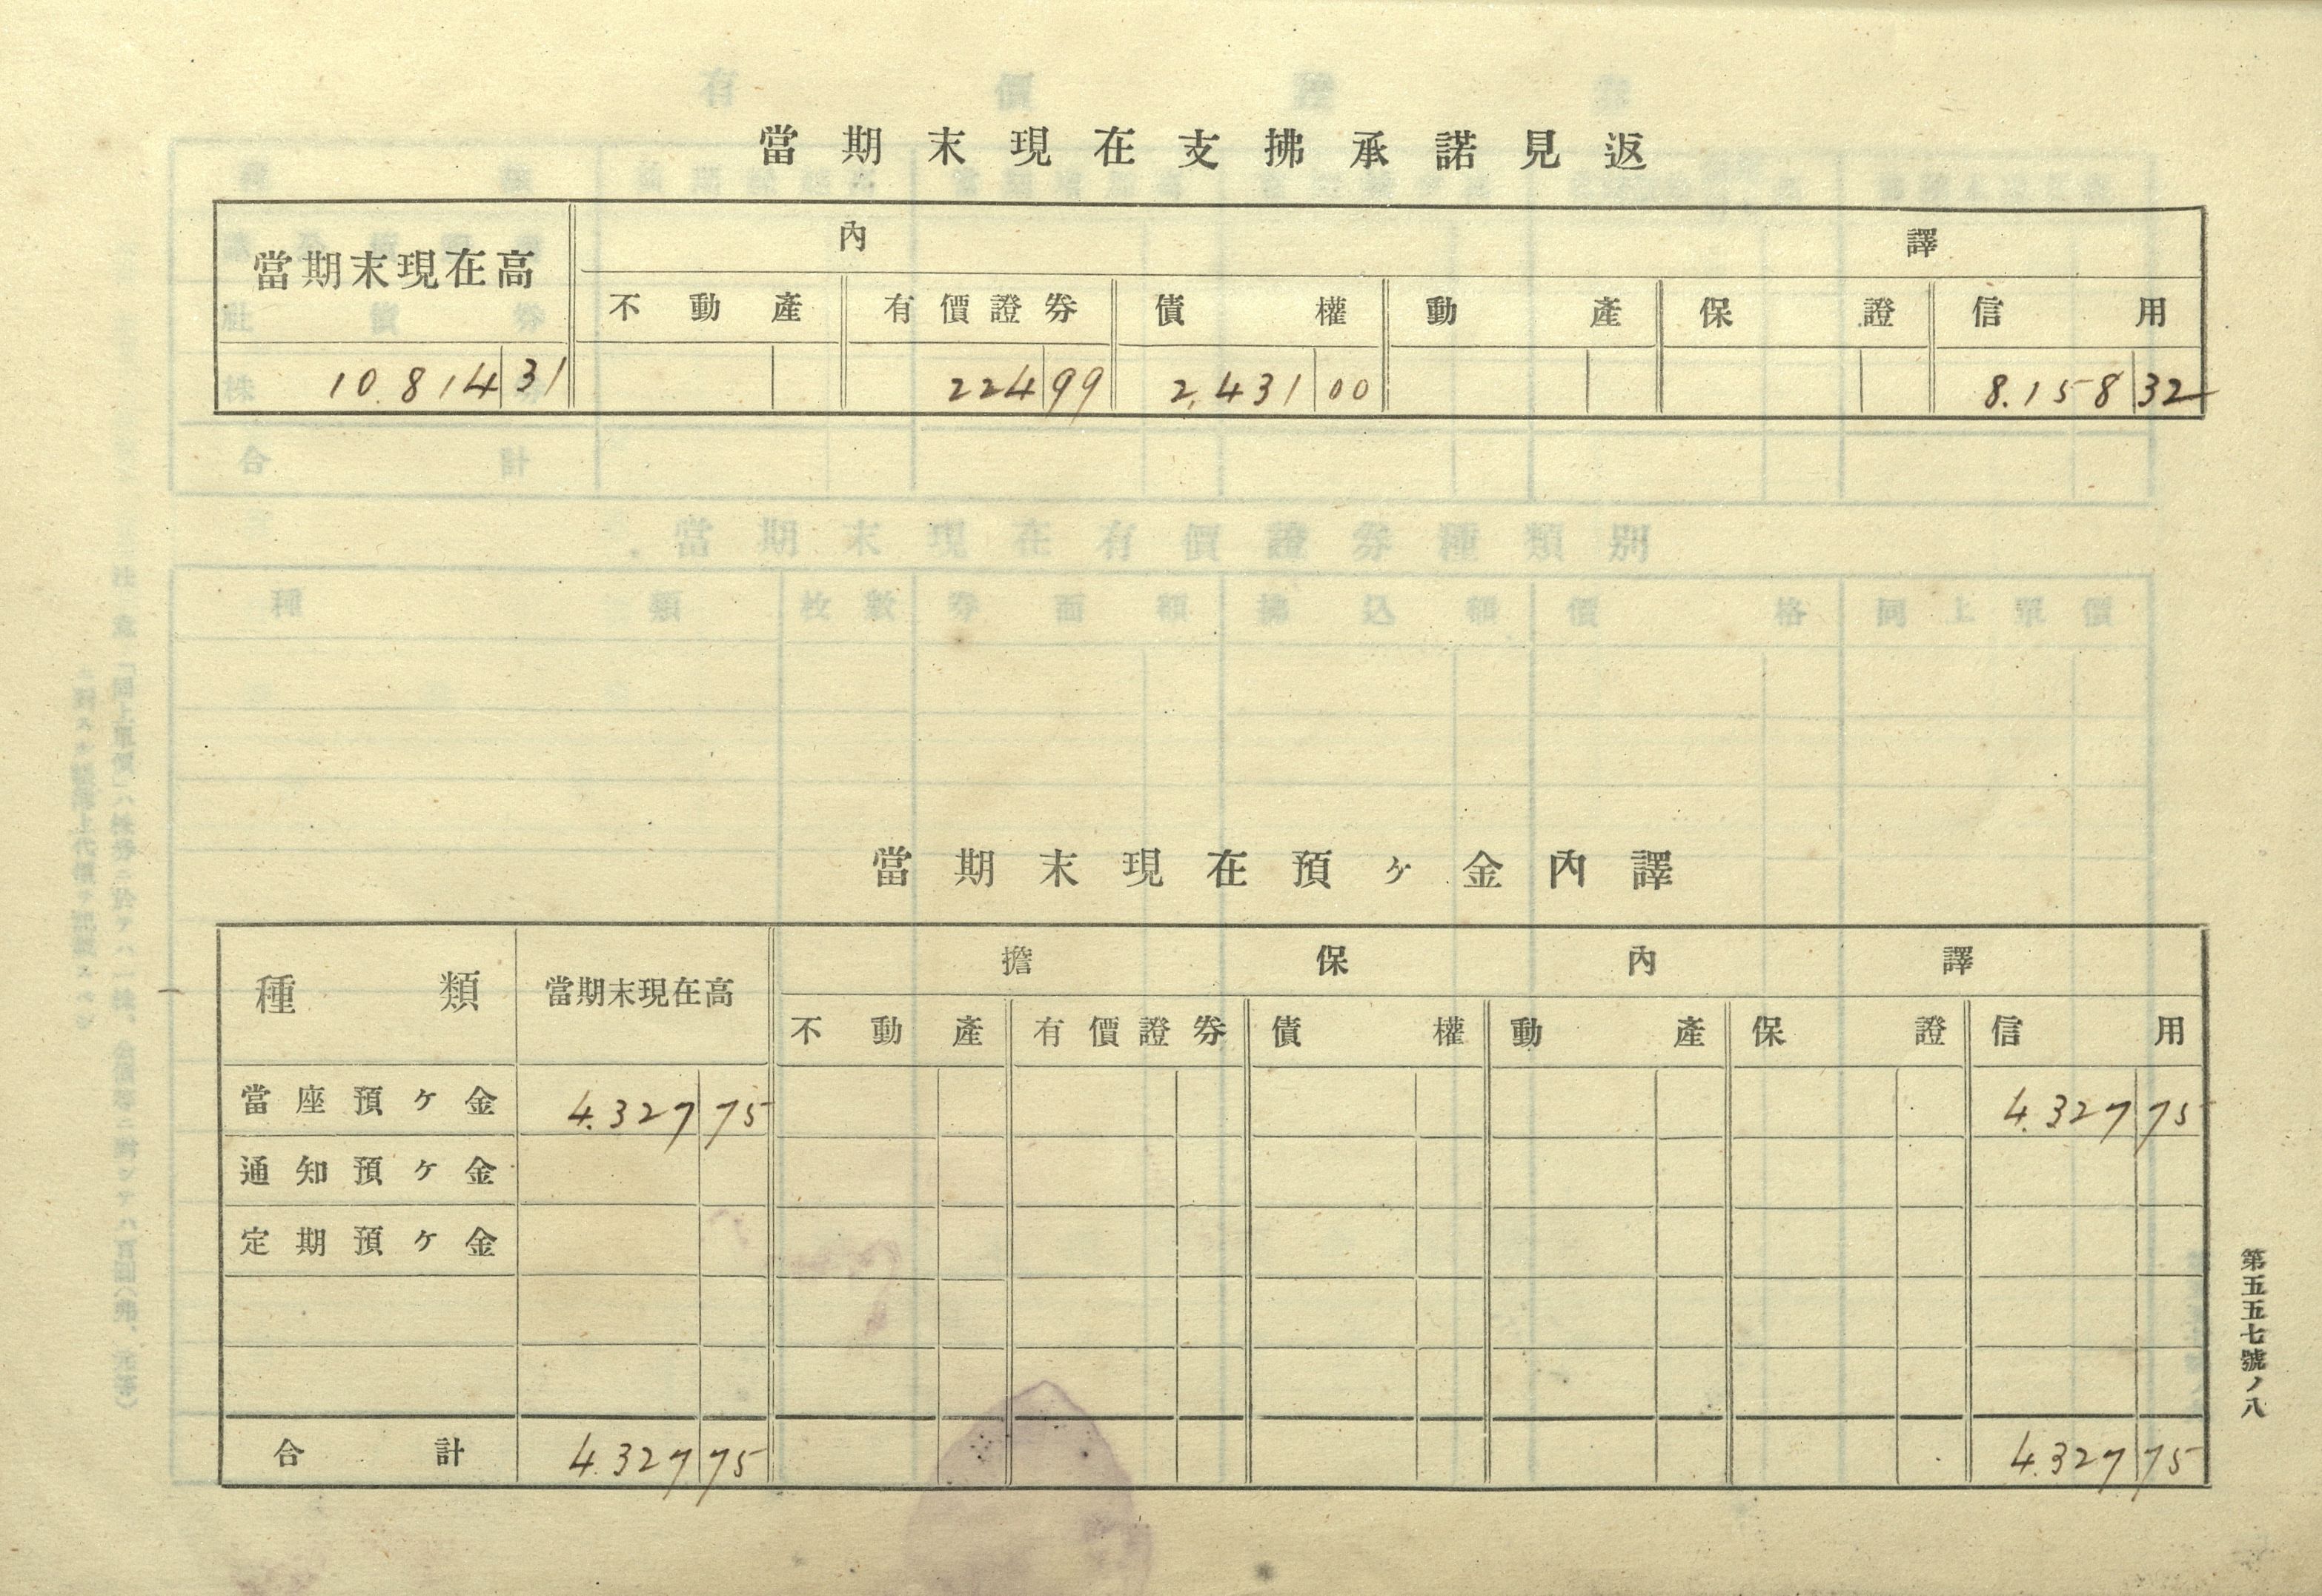 當期末現在支拂承諾見返
當期末現在高 內譯
不動產 有價證券 債權 動產 保證 信用
10.814 31 224 99 2,431 00 8.158 32
當期末現在預ヶ金內譯
種類 當期末現在高 擔保內譯
不動產 有價證券 債權 動產 保證 信用
當座預ケ金 4.327 75 4.327 75
通知預ケ金
定期預ケ金
合計 4.327 75 4.327 75
第五五七號ノ八